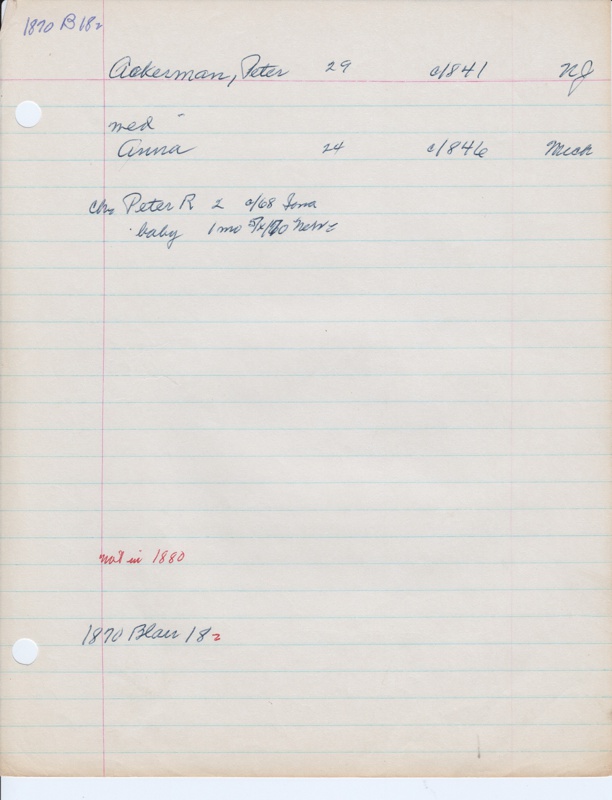 1870 B 18 2
Ackerman, Peter 29 c/841 NJ
med
Anna 24 c/846 Mich
chn Peter R 2 c/68 Iowa
baby 1 mo 5/ /70 Nebr
not in 1880
1870 Blair 18 2